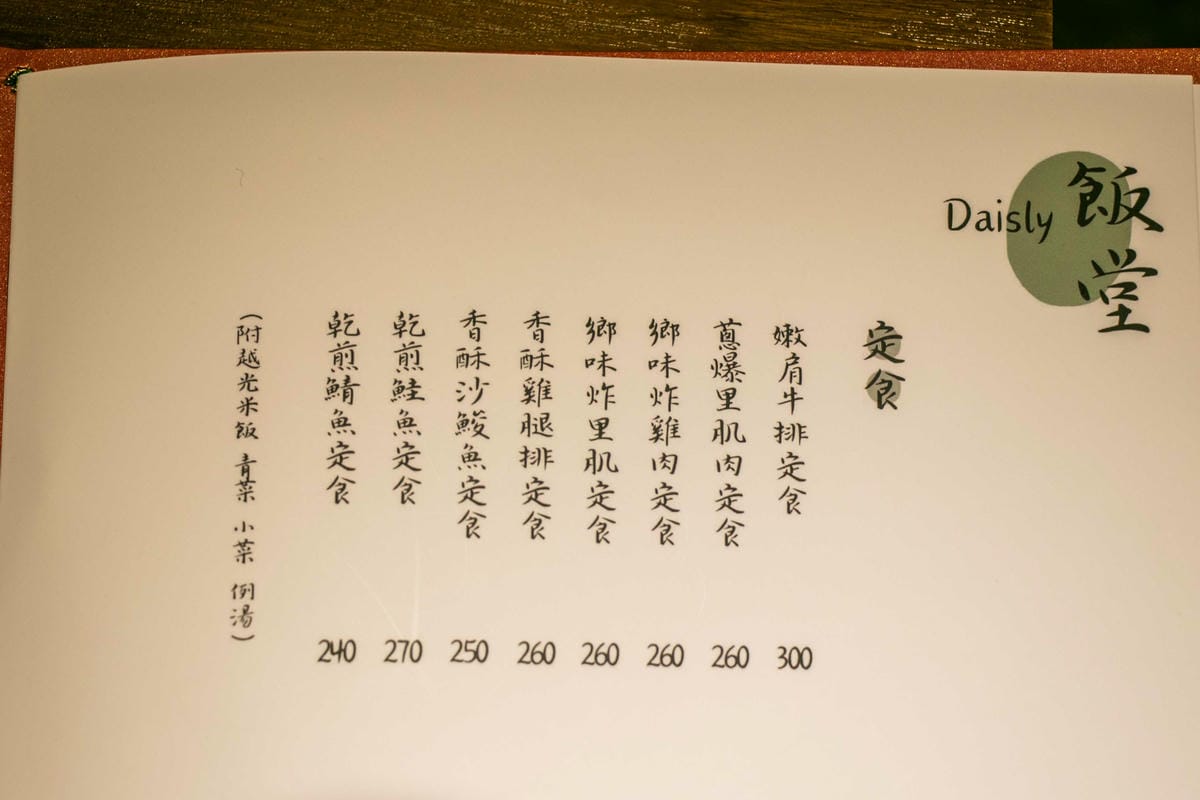 Daisly 飯堂
定食
嫩肩牛排定食 300
蔥爆里肌肉定食 260
鄉味炸雞肉定食 260
鄉味炸里肌定食 260
香酥雞腿排定食 260
香酥沙鮻魚定食 250
乾煎鮭魚定食 270
乾煎鯖魚定食 240
(附越光米飯 青菜 小菜 例湯)